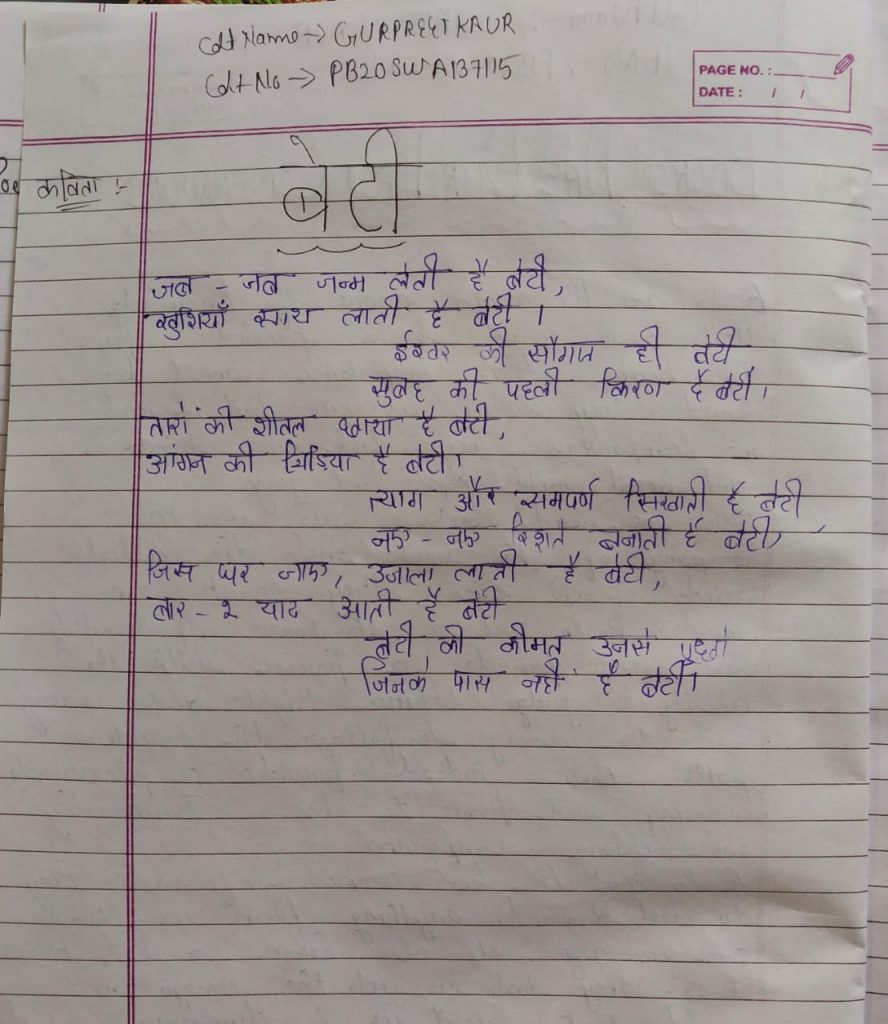 Cdt Name → GURPREET KAUR
Cdt No → PB20SWA137115
PAGE NO. :
DATE : / /
कविता :-
बेटी
जब - जब जन्म लेती है बेटी,
खुशियाँ साथ लाती है बेटी ।
ईश्वर की सौगात ही बेटी
सुबह की पहली किरण है बेटी।
तारों की शीतल छाया है बेटी,
आंगन की चिड़िया है बेटी।
त्याग और समपर्ण सिखाती है बेटी
नए - नए रिश्ते बनाती है बेटी,
जिस घर जाए, उजाला लाती है बेटी,
बार - २ याद आती है बेटी
बेटी की कीमत उनसे पूछो
जिनके पास नहीं है बेटी।